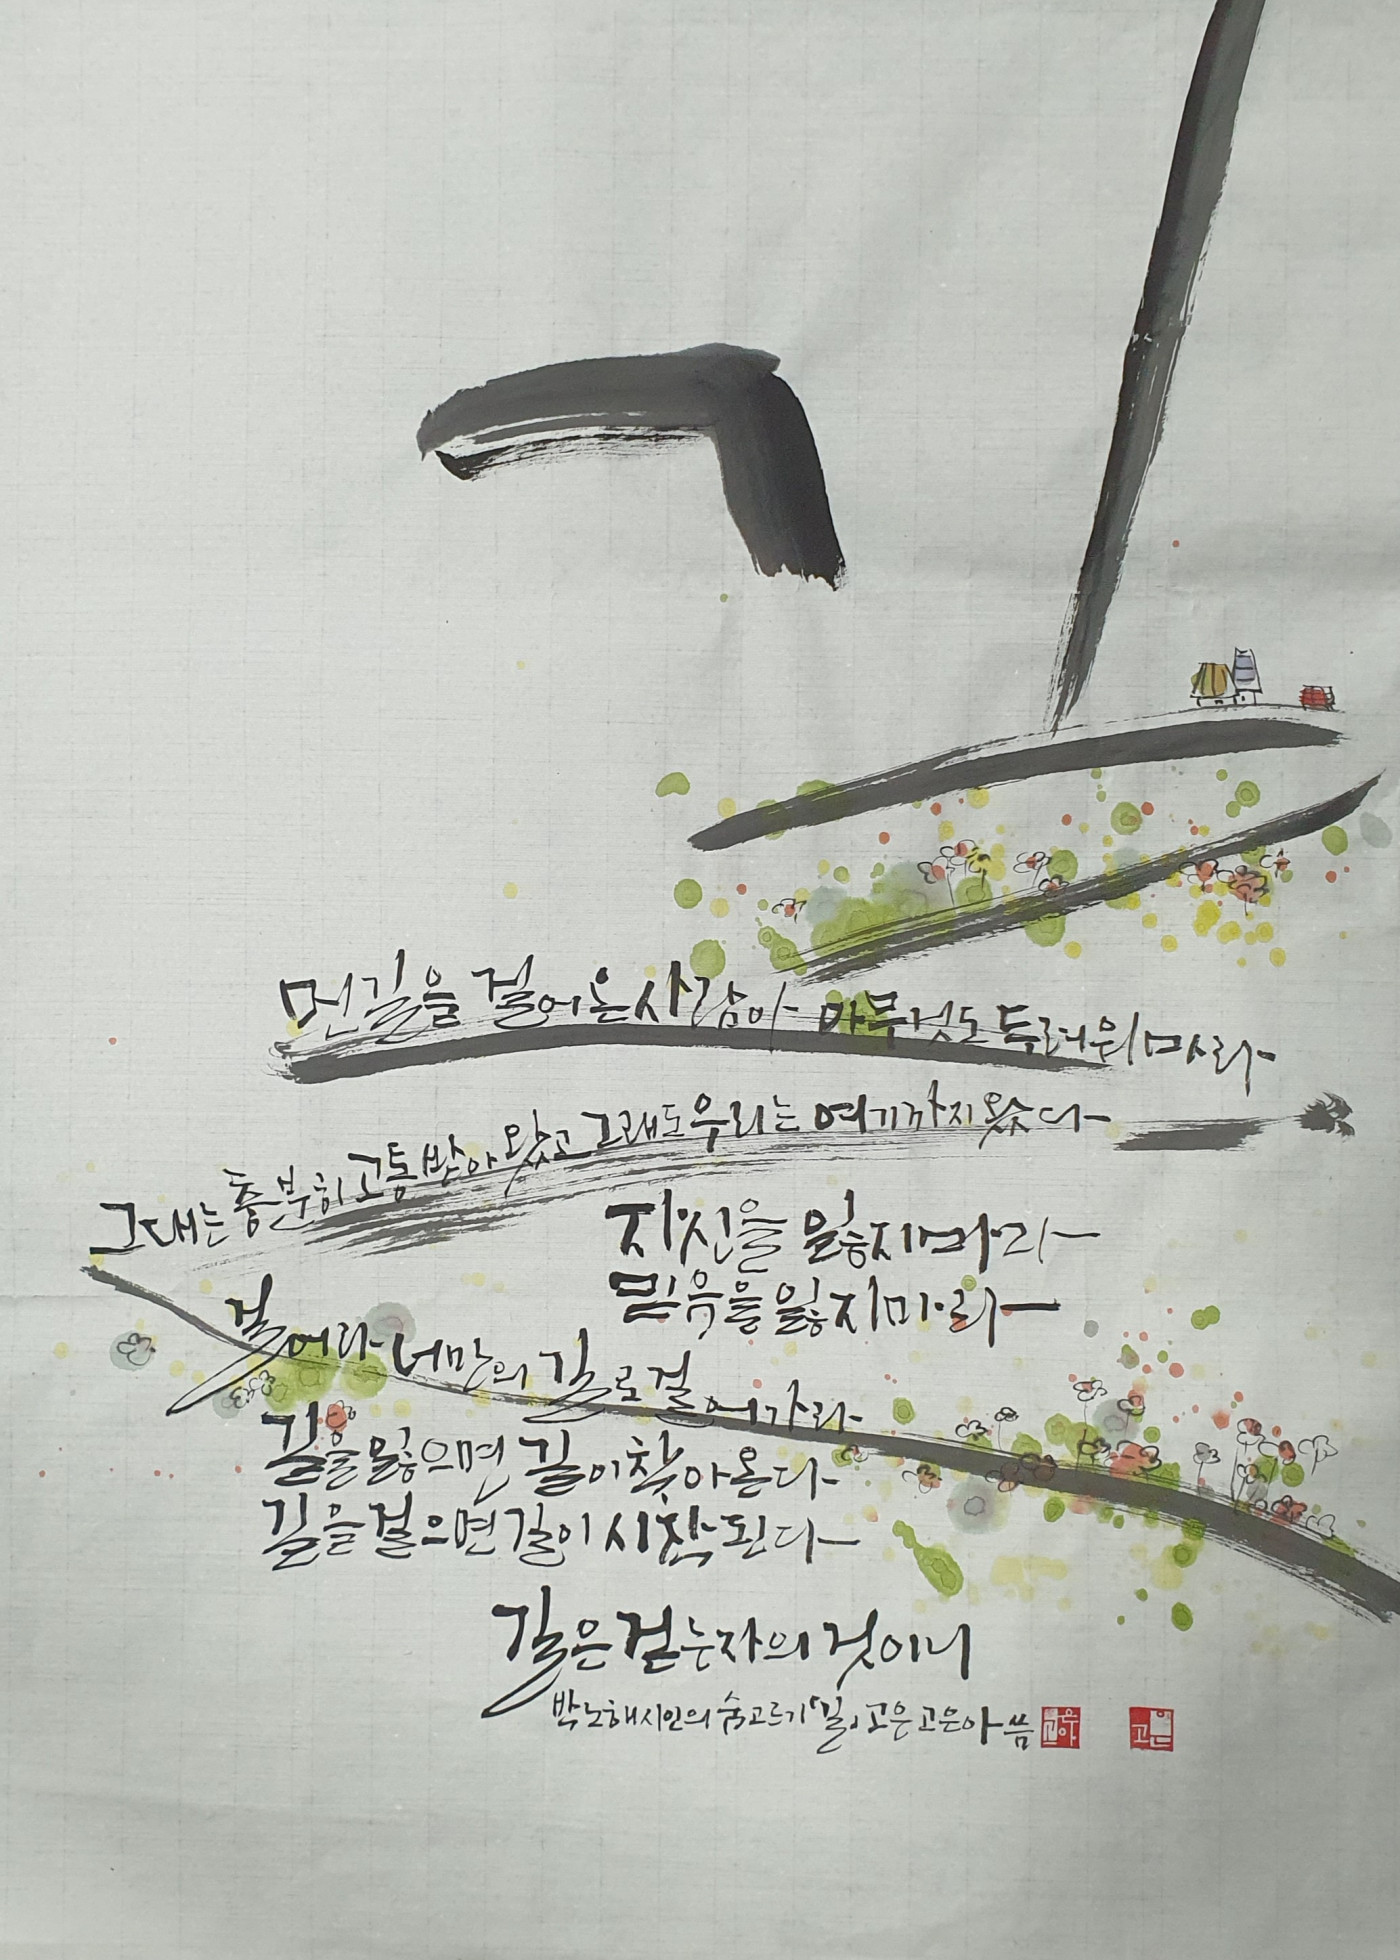 길
먼길을 걸어온사람아 아무것도 두려워마라
그대는 충분히 고통받아왔고 그래도 우리는 여기까지 왔다
자신을 잃지마라
믿음을 잃지마라
걸어라 너만의 길로 걸어가라
길을 잃으면 길이 찾아온다
길을 걸으면 길이 시작된다
길은 걷는자의 것이니
박노해시인의 숨고르기「길」고은고은아 씀
고은아